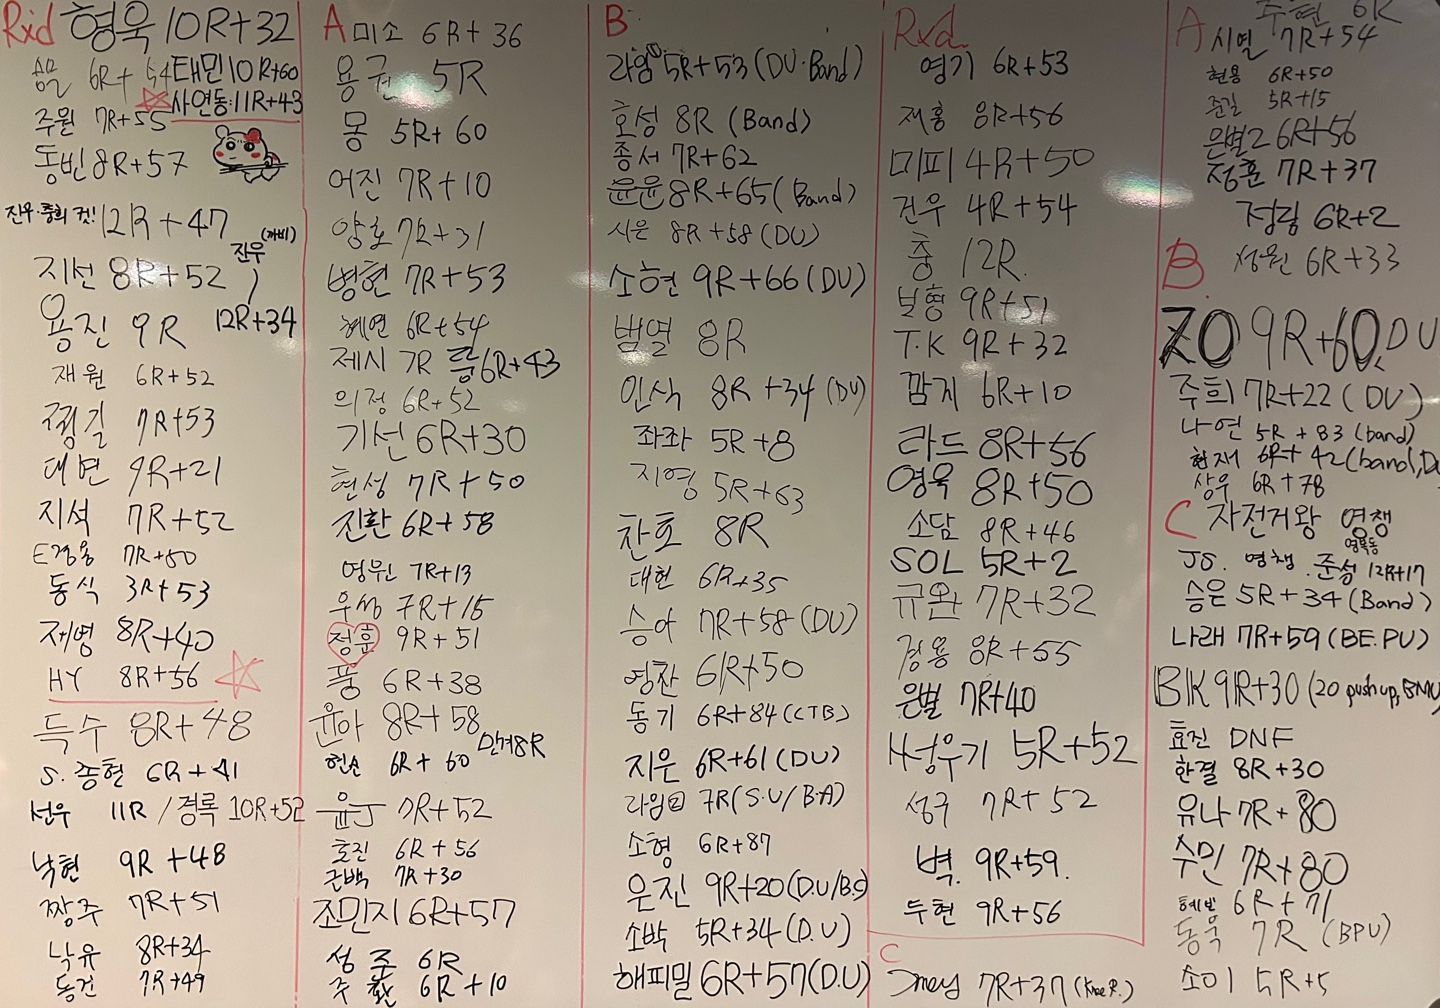 Rxd 형욱 10R+32
승민 6R+54 태민 10R+60
사연동:11R+43
주원 7R+55
동빈 8R+57
진우·중희 컷! 12R+47
진우 (깨비)
12R+34
지선 8R+52
용진 9R
재원 6R+52
찡길 7R+53
대현 9R+21
지석 7R+52
E경용 7R+50
동식 3R+53
제영 8R+40
HY 8R+56
득수 8R+48
S.종현 6R+41
선우 11R / 경록 10R+52
낙현 9R+48
짱주 7R+51
낙유 8R+34
동건 7R+49
A 미소 6R+36
용권 5R
몽 5R+60
어진 7R+10
양호 7R+31
병현 7R+53
혜연 6R+54
제시 7R 륭 6R+43
의정 6R+52
기선 6R+30
현성 7R+50
진환 6R+58
영원 7R+13
우성 7R+15
정훈 9R+51
풍 6R+38
윤아 8R+58
민겨 8R
현순 6R+60
윤J 7R+52
호진 6R+56
근백 7R+30
조민지 6R+57
성조 6R
주환 6R+10
B
라임① 5R+53 (DU·Band)
호성 8R (Band)
종서 7R+62
윤윤 8R+65 (Band)
시은 8R+58 (DU)
소현 9R+66 (DU)
범열 8R
인식 8R+34 (DU)
좌좌 5R+8
지영 5R+63
찬호 8R
대헌 6R+35
승아 7R+58 (DU)
영찬 6R+50
동기 6R+84 (CTB)
지은 6R+61 (DU)
라임② 7R (S.U/B.A)
소형 6R+87
은진 9R+20 (D.U/B.S)
소박 5R+34 (D.U)
해피밀 6R+57 (D.U)
Rxd
영기 6R+53
재홍 8R+56
미피 4R+50
건우 4R+54
충 12R.
보형 9R+51
T.K 9R+32
깜지 6R+10
라드 8R+56
영욱 8R+50
소담 8R+46
SOL 5R+2
규완 7R+32
경용 8R+55
은별 7R+40
H성우기 5R+52
성구 7R+52
벽. 9R+59.
두현 9R+56
C
7R+37 (Knee R.)
주현 6R
A 시열 7R+54
현용 6R+50
준길 5R+15
은별2 6R+56
정훈 7R+37
정림 6R+2
성원 6R+33
B.
ZO 9R+60, DU
주희 7R+22 (DU)
나연 5R+83 (band)
현재 6R+42 (band, Du
상우 6R+78
C 자전거왕 영쟁
영록동
JS. 명쟁. 준성 12R+17
승은 5R+34 (Band)
나래 7R+59 (BE.PU)
BK 9R+30 (20 pushup, BMU
효진 DNF
한결 8R+30
유나 7R+80
수민 7R+80
혜빈 6R+71
동욱 7R (BPU)
소이 5R+5